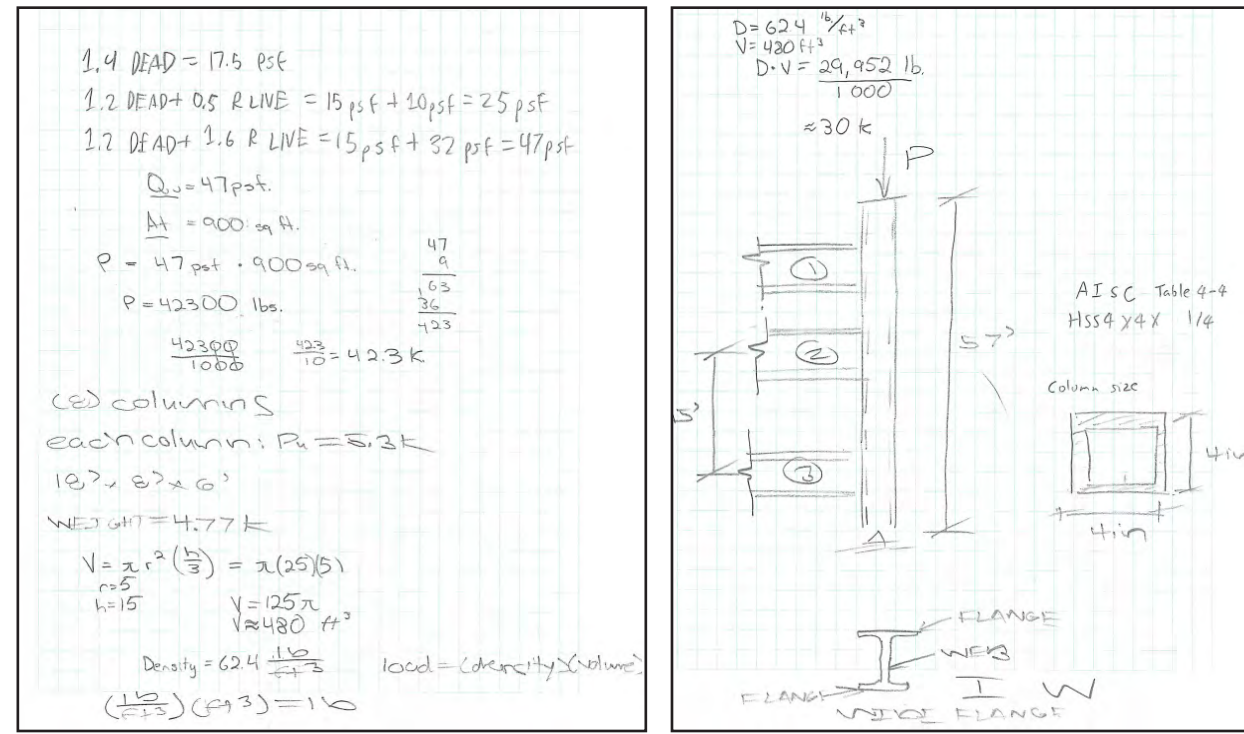 1.4 DEAD = 17.5 PSF
1.2 DEAD + 0.5 R LIVE = 15 psf + 10 psf = 25 psf
1.2 DEAD + 1.6 R LIVE = 15 psf + 32 psf = 47 psf
Qu = 47 psf.
At = 900 sq ft.
P = 47 psf · 900 sq ft.
P = 42300 lbs.
47
9
63
36
423
42300/1000 423/10 = 42.3 K
(8) columns
each column: Pu = 5.3 k
18' x 8' x 6'
WEIGHT = 4.77 k
V = π r² (h/3) = π(25)(5)
r=5
h=15
V = 125π
V ≈ 480 ft³
Density = 62.4 lb/ft3 load = (density)(volume)
(lb/ft3)(ft3) = lb
D = 624 lb/ft³
V = 480 ft³
D·V = 29,952 lb.
1000
≈ 30 k
P
1
2
3
5'
57'
AISC Table 4-4
HSS 4 X 4 X 1/4
Column size
4in
4in
FLANGE
WEB
FLANGE
I W
WIDE FLANGE